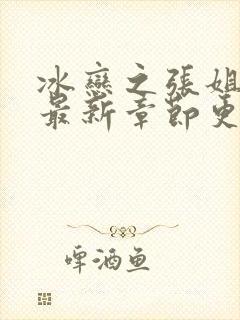 冰戀之張姐
最新章節更
啤酒魚